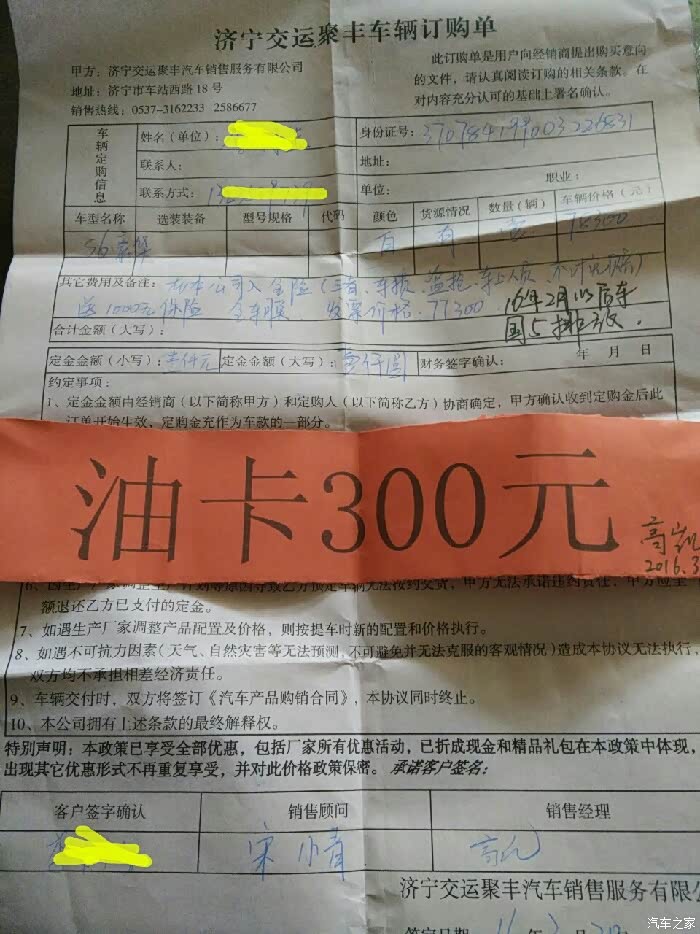 济宁交运聚丰车辆订购单
甲方：济宁交运聚丰汽车销售服务有限公司
地址：济宁市车站西路18号
销售热线：0537-3162233 2586677
此订购单是用户向经销商提出购买意向
的文件，请认真阅读订购的相关条款。在
对内容充分认可的基础上署名确认。
车辆定购信息
姓名（单位）：
身份证号：
联系人：
地址：
联系方式：
单位：
职业：
车型名称 选装装备 型号规格 代码 颜色 货源情况 数量（辆） 车辆价格（元）
白 有
其它费用及备注：
送1000元保险 发票价格：77300
16年2月以后车
国5排放
合计金额（大写）：
定金金额（小写）：壹仟元 定金金额（大写）：壹仟圆 财务签字确认： 年 月 日
约定事项：
1、定金金额由经销商（以下简称甲方）和定购人（以下简称乙方）协商确定，甲方确认收到定购金后此
订单开始生效，定购金充作为车款的一部分。
油卡300元
2016.3
额退还乙方已支付的定金。
7、如遇生产厂家调整产品配置及价格，则按提车时新的配置和价格执行。
8、如遇不可抗力因素（天气、自然灾害等无法预测，不可避免并无法克服的客观情况）造成本协议无法执行，
双方均不承担相差经济责任。
9、车辆交付时，双方将签订《汽车产品购销合同》，本协议同时终止。
10、本公司拥有上述条款的最终解释权。
特别声明：本政策已享受全部优惠，包括厂家所有优惠活动，已折成现金和精品礼包在本政策中体现，
出现其它优惠形式不再重复享受，并对此价格政策保密。承诺客户签名：
客户签字确认 销售顾问 销售经理
济宁交运聚丰汽车销售服务有限公
汽车之家